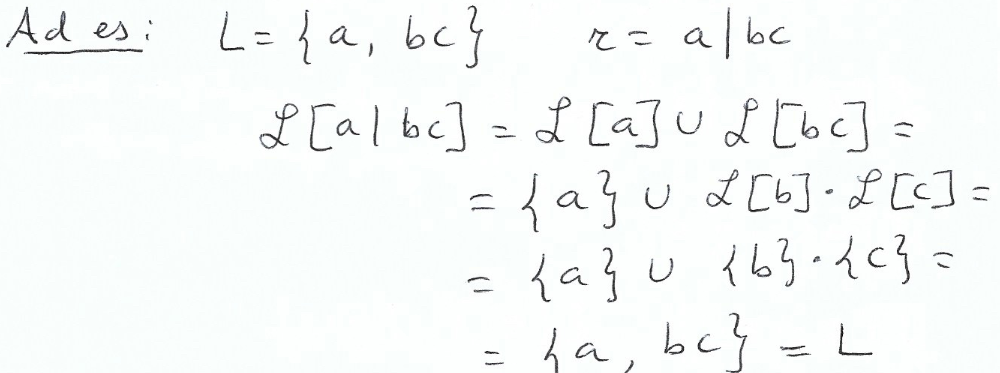 Ad es: L = {a, bc} r = a|bc
ℒ[a|bc] = ℒ[a] ∪ ℒ[bc] =
= {a} ∪ ℒ[b]·ℒ[c] =
= {a} ∪ {b}·{c} =
= {a, bc} = L